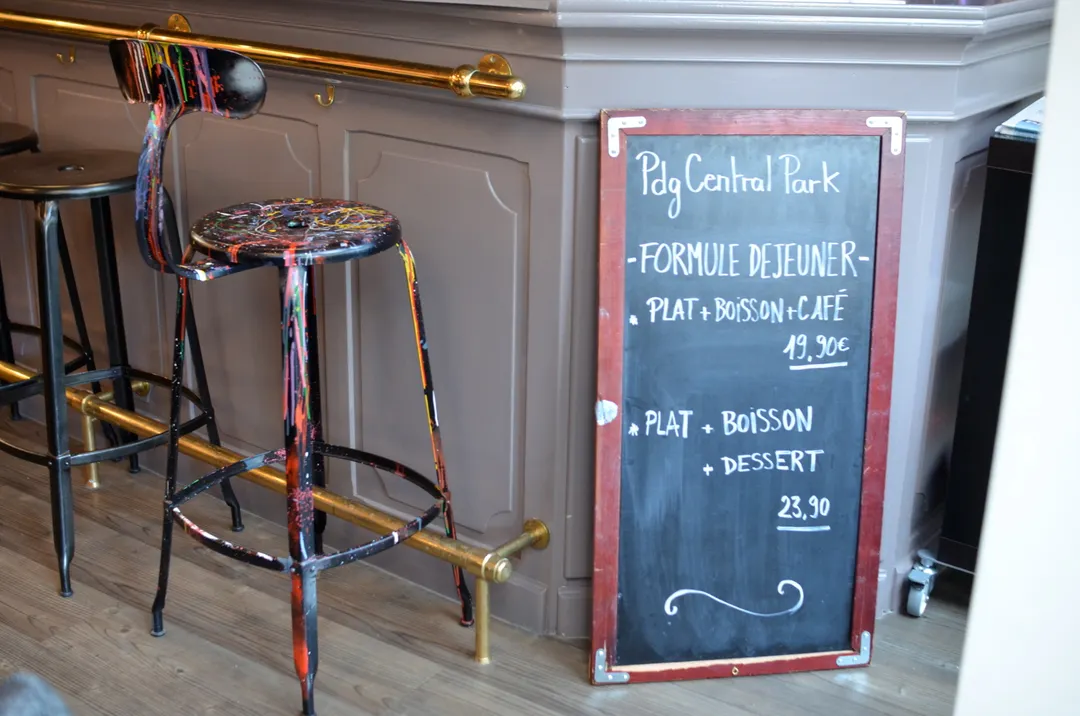 Pdg Central Park
-FORMULE DEJEUNER-
* PLAT + BOISSON + CAFÉ
19,90€
* PLAT + BOISSON
+ DESSERT
23,90